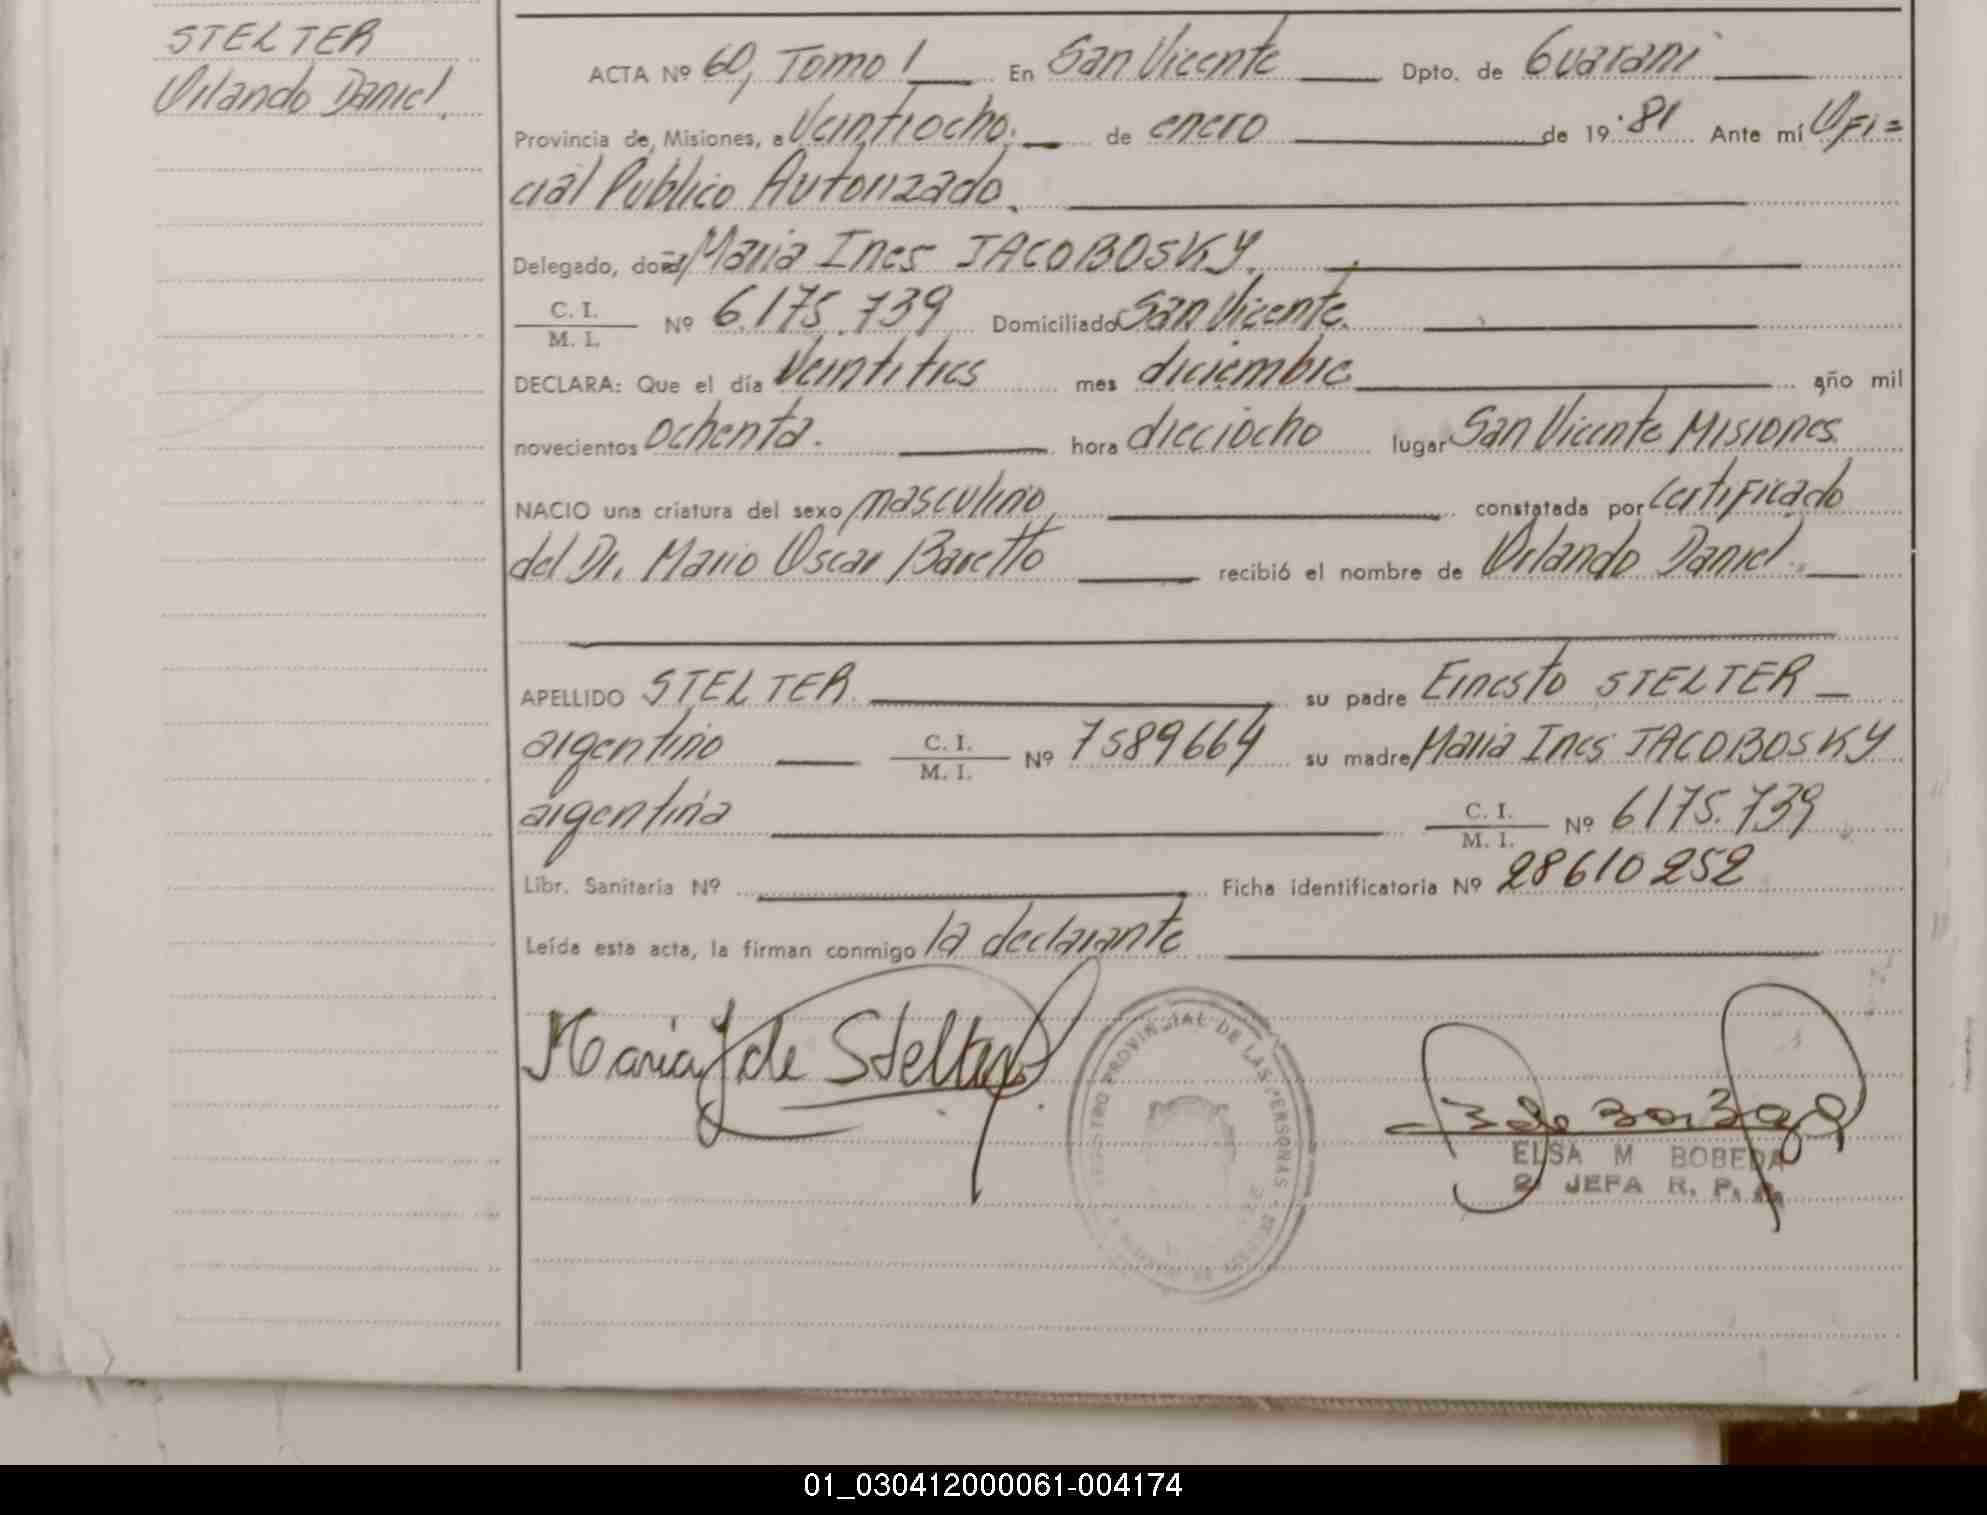 STELTER
Orlando Daniel.
ACTA Nº 60, Tomo 1 En San Vicente Dpto. de Guaraní
Provincia de Misiones, a Veintiocho. de enero de 19 81 Ante mí Ofi=
cial Publico Autorizado.
Delegado, doña Maria Ines JACOBOSKY.
C. I.
M. I. Nº 6.175.739 Domiciliado San Vicente.
DECLARA: Que el día Veintitres mes diciembre año mil
novecientos ochenta. hora dieciocho lugar San Vicente Misiones
NACIO una criatura del sexo masculino, constatada por certificado
del Dr. Mario Oscar Baretto recibió el nombre de Orlando Daniel.
APELLIDO STELTER. su padre Ernesto STELTER
argentino C. I. M. I. Nº 7589664 su madre Maria Ines JACOBOSKY
argentina C. I. M. I. Nº 6175.739
Libr. Sanitaria Nº Ficha identificatoria Nº 28610252
Leída esta acta, la firman conmigo la declarante
Maria J de Stelter
REGISTRO PROVINCIAL DE LAS PERSONAS
ELSA M BOBEDA
JEFA R. P.
01_030412000061-004174